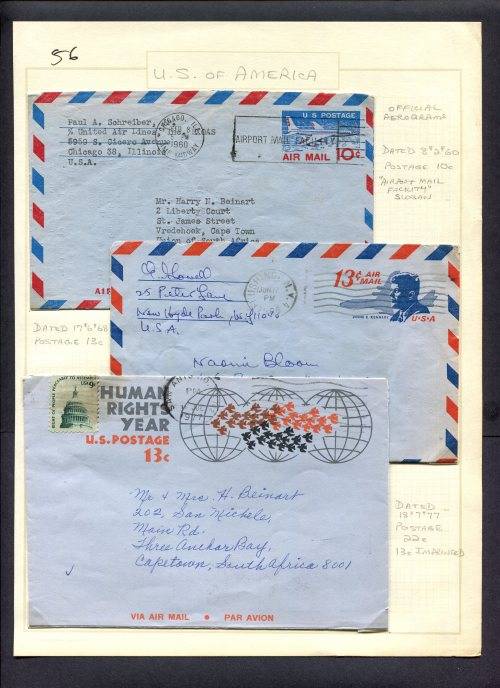 56
U.S. OF AMERICA
Paul A. Schreiber
% United Air Lines,
5959 S. Cicero Avenue
Chicago 38, Illinois
U.S.A.
CHICAGO, ILL.
1960
AIRPORT MAIL FACILITY
U S POSTAGE
AIR MAIL 10¢
Mr. Harry N. Beinart
2 Liberty Court
St. James Street
Vredehoek, Cape Town
Union of South Africa
OFFICIAL
AEROGRAMS
DATED 8°2°60
POSTAGE 10c
"AIRPORT MAIL
FACILITY"
SLOGAN
DATED 17°6°68
POSTAGE 13c
25 Peter Lane
New Hyde Park, N.Y. 11040
U.S.A.
PM
13¢ AIR
MAIL
JOHN F. KENNEDY
U•S•A
Naomi Bloom
RIGHT OF PEOPLE PEACEABLY TO ASSEMBLE
USA 9c
HUMAN
RIGHTS
YEAR
U.S. POSTAGE
13c
PM
Mr & Mrs. H. Beinart
202, San Michele,
Main Rd.
Three Anchor Bay,
Capetown, South Africa 8001
VIA AIR MAIL • PAR AVION
DATED
18°7°77
POSTAGE
22c
13c IMPRINTED